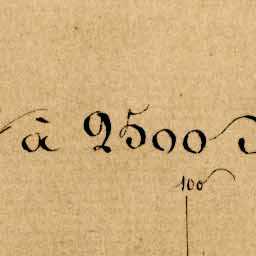 à 2500
100